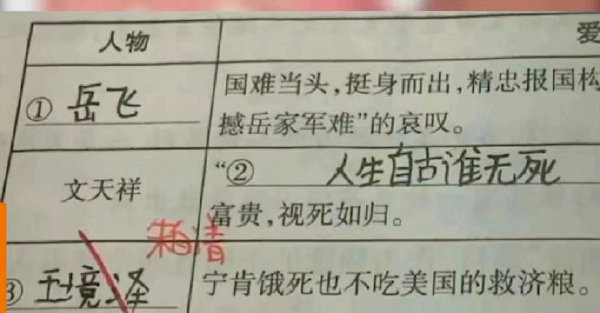 人物
爱
① 岳飞
国难当头，挺身而出，精忠报国构
撼岳家军难”的哀叹。
文天祥
“② 人生自古谁无死
富贵，视死如归。
朱自清
宁肯饿死也不吃美国的救济粮。